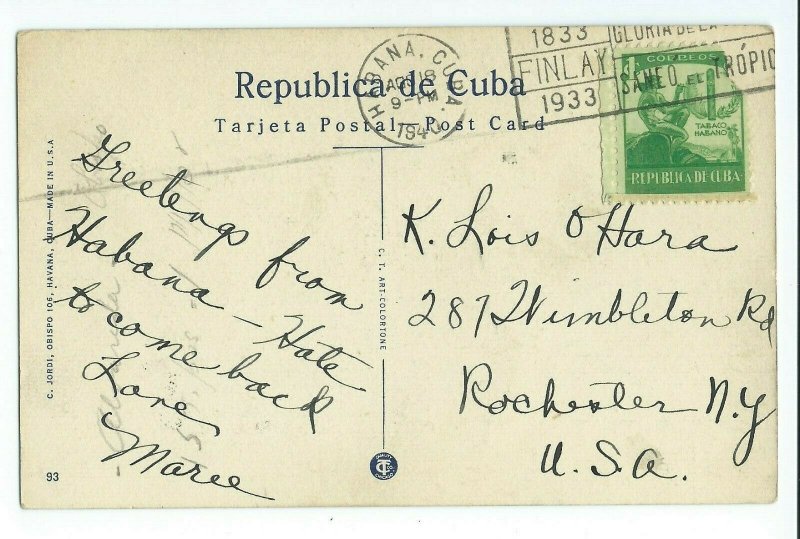 Republica de Cuba
Tarjeta Postal—Post Card
HABANA, CUBA.
APR 18
9-PM
194
1833
FINLAY
1933
GLORIA DE LA
SANEO EL TRÓPIC
CORREOS
TABACO
HABANO
REPUBLICA DE CUBA
C. JORDI, OBISPO 106, HAVANA, CUBA—MADE IN U.S.A
Greetings from
Habana - Hate
to come back
Love,
Maree
93
C. T. ART-COLORTONE
K. Lois O'Hara
287 Wimbleton Rd
Rochester N.Y
U.S.A.